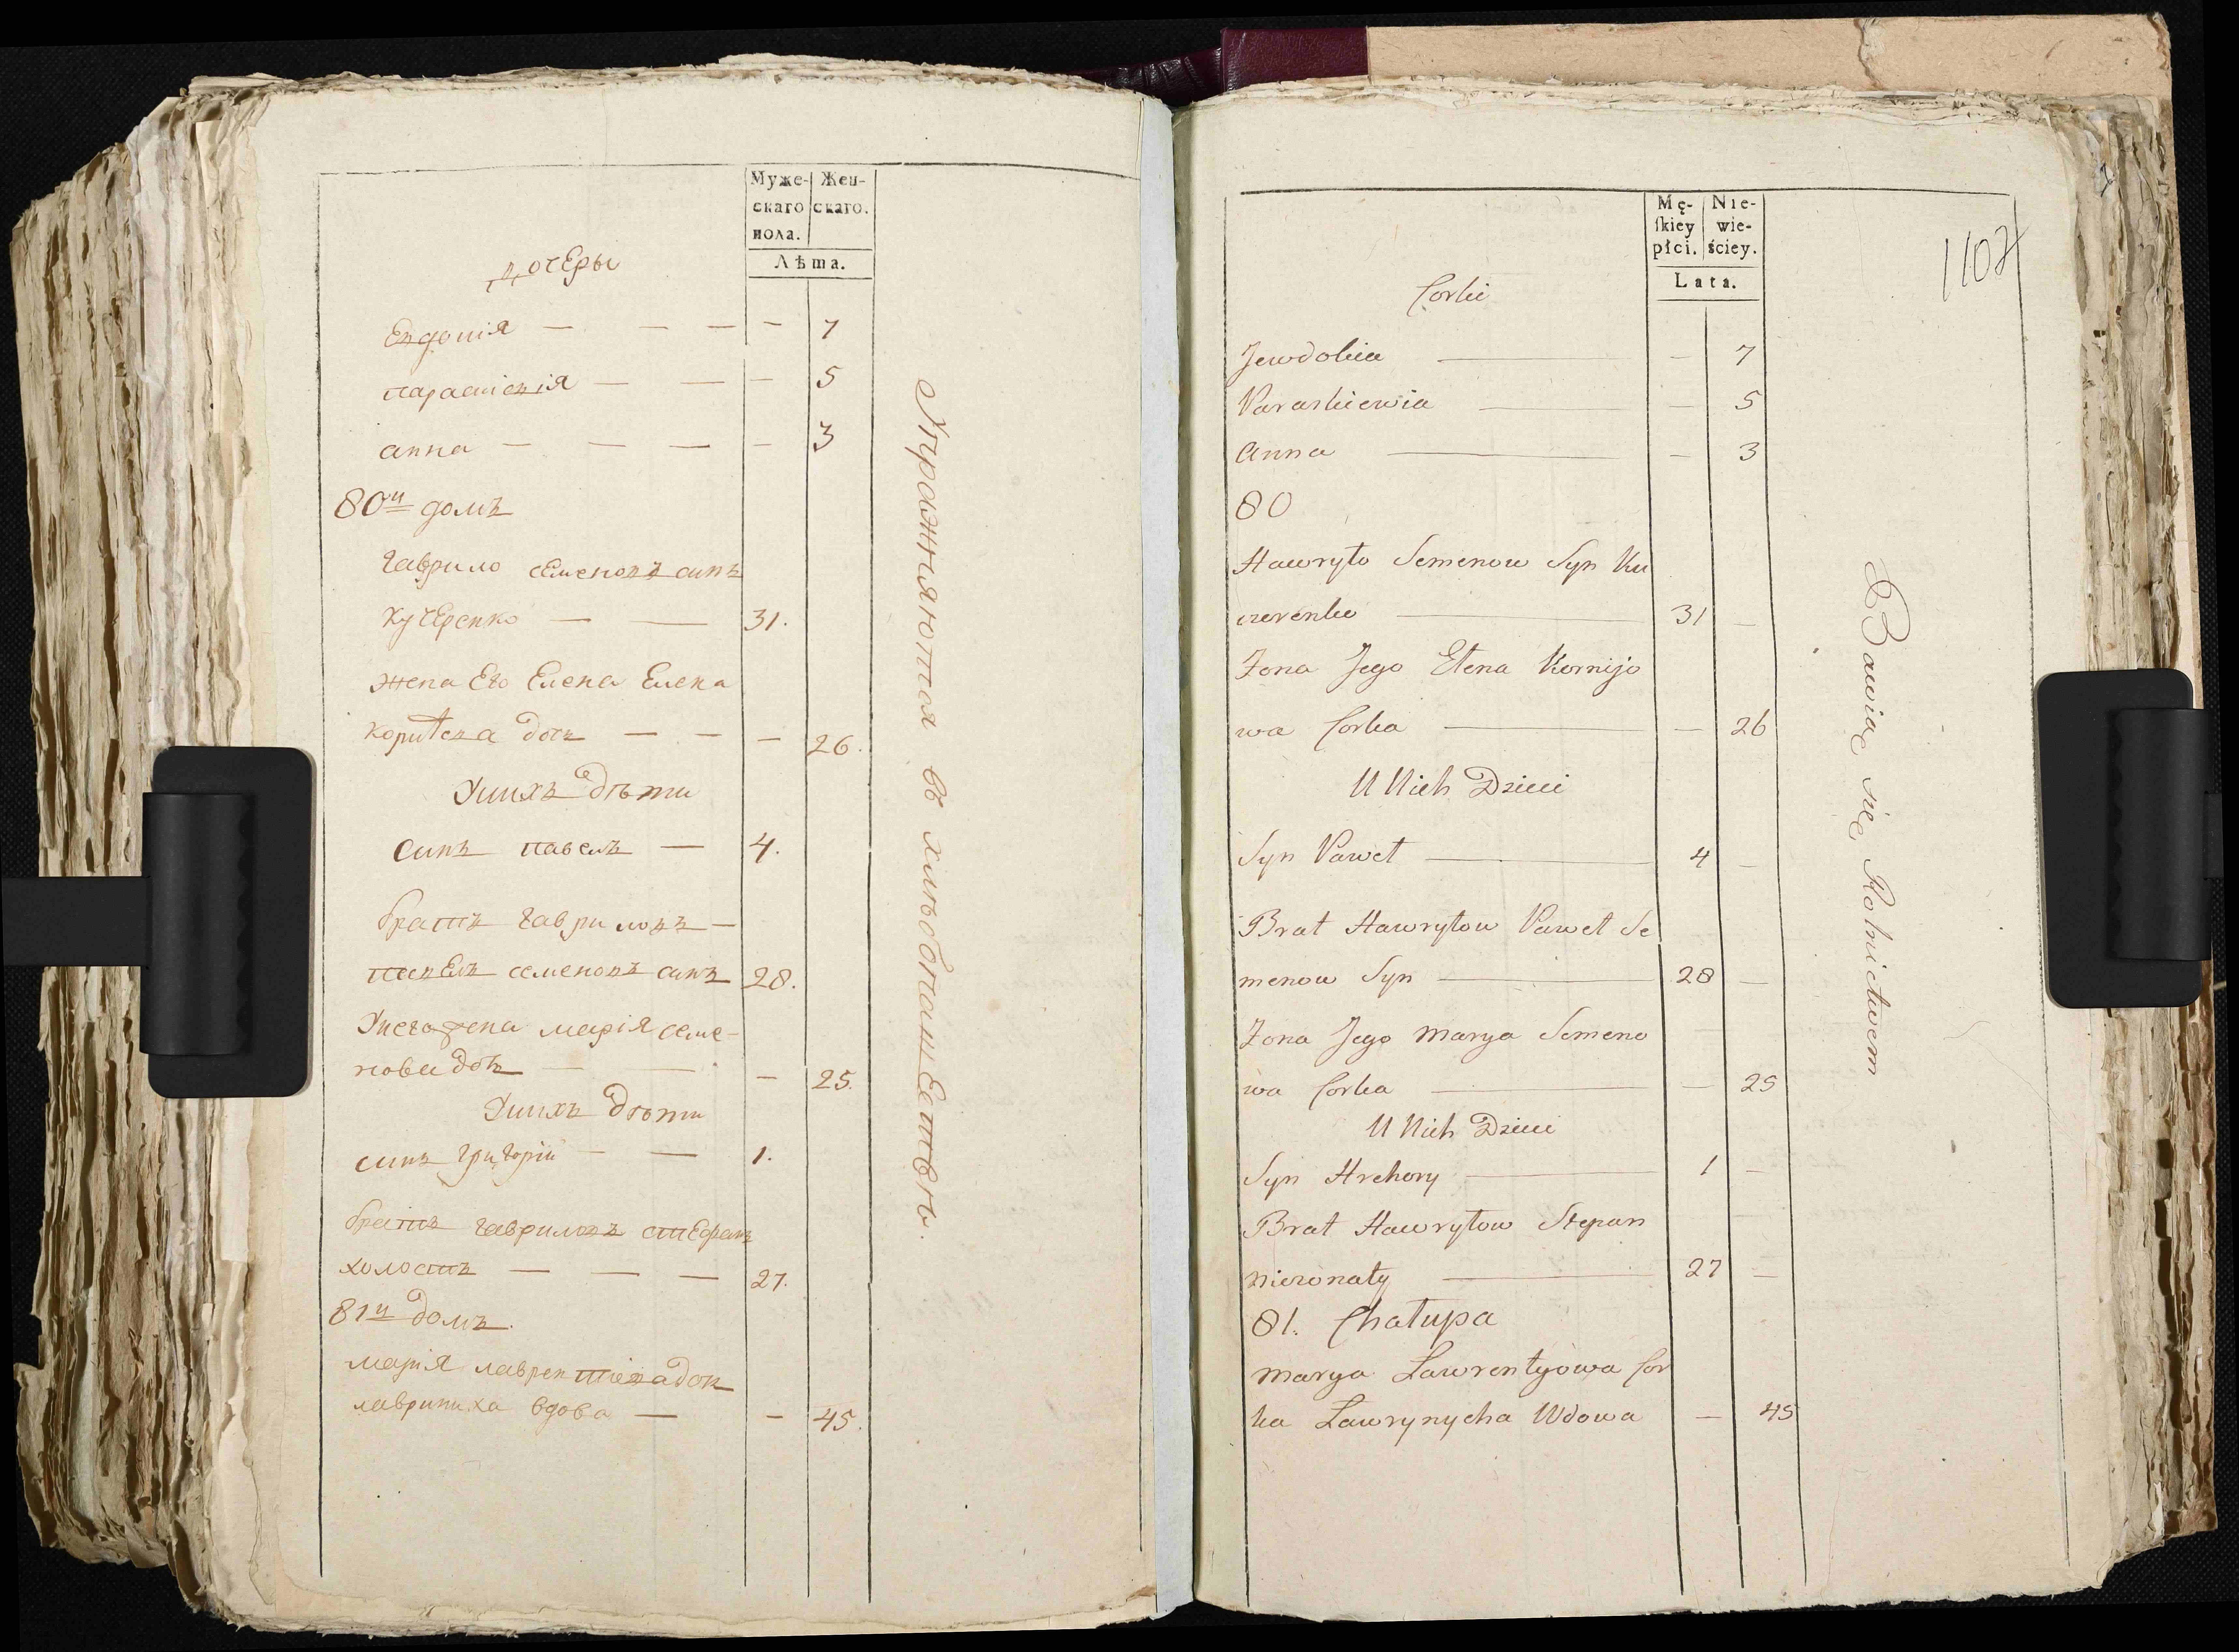 Муже- Жен-
скаго скаго.
пола.
Лѣта.
дочеры
Евдокия — — — — 7
параскевія — — — 5
анна — — — — 3
80й домъ
гаврило семеновъ синъ
кучеренко — — 31.
жена Его Елена Елена
корнѣева дочь — — — 26.
Унихъ дѣти
синъ павелъ — 4.
братъ гавриловъ —
павелъ семеновъ синъ 28.
Унегожена марія семе-
нова дочь — — — 25.
Унихъ дѣти
синъ григорій — — 1.
братъ гавриловъ стефанъ
холостъ — — — 27.
81й домъ.
марія лаврентіева дочь
лавриниха вдова — — 45.
Упражняются въ хлѣбопашествѣ.
Mę- Nie-
ſkiey wie-
płci. ściey.
Lata.
1107
Corki
Jewdokia — — 7
Paraskiewia — — 5
Anna — — 3
80
Hawryło Semenow Syn Ku
czerenko — 31 —
Zona Jego Elena Kornijo
wa Corka — — 26
U Nich Dzieci
Syn Paweł — 4 —
Brat Hawryłow Paweł Se
menow Syn — 28 —
Zona Jego Marya Semeno
wa Corka — — 25
U Nich Dzieci
Syn Hrehory — 1 —
Brat Hawryłow Stepan
niezonaty — 27 —
81. Chałupa
Marya Ławrentyjowa Cor
ka Ławrynycha Wdowa — 45
Bawią się Rolnictwem